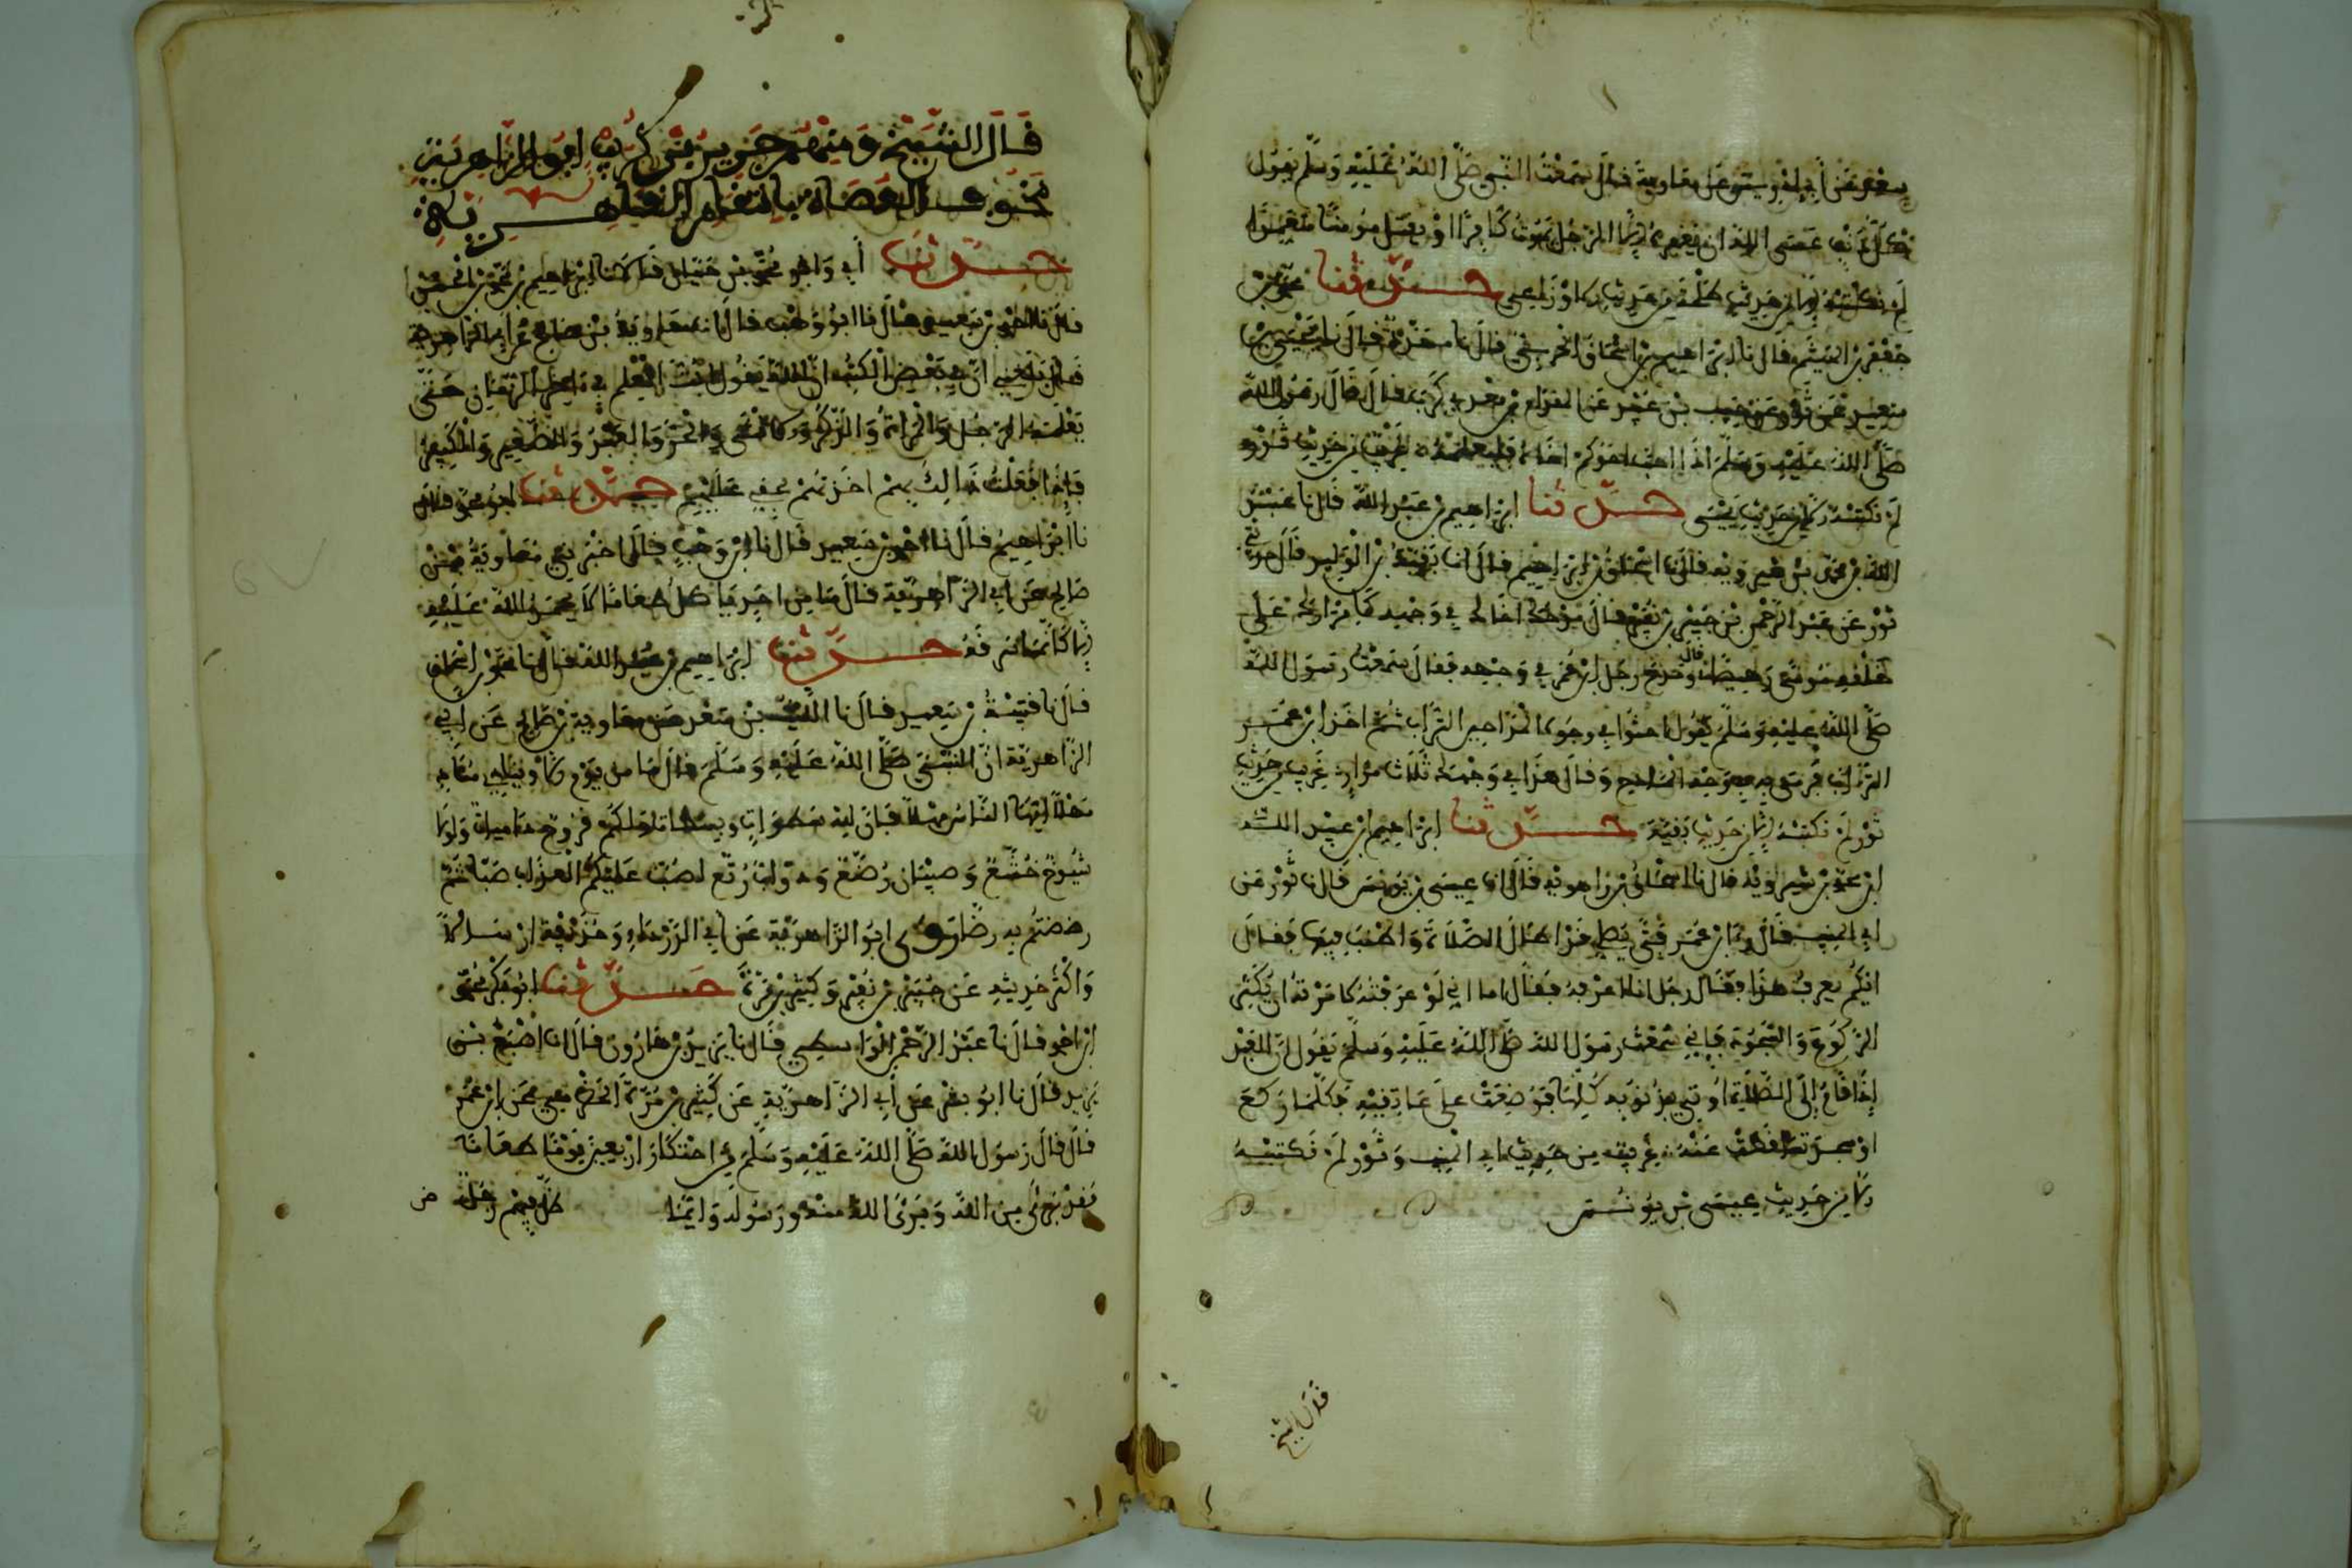 سعد عن أبي إدريس عن معاوية قال سمعت النبي صلى الله عليه وسلم يقول
كل ذنب عسى الله ان يغفره الا الرجل يموت كافرا او يقتل مومنا متعمدا
لم نكتبه الا من حديث حدثنا محمد بن
جعفر بن الهيثم قال نا ابراهيم بن اسحاق الحربي قال نا مسدد قال نا يحيى بن
سعيد عن ثور عن حبيب بن عبيد عن المقدام بن معدي كرب قال قال رسول الله
صلى الله عليه وسلم اذا احب احدكم اخاه فليعلمه غريب من حديث ثور
لم نكتبه الا من حديث يحيى حدثنا ابراهيم بن عبد الله قال نا عبد
الله بن محمد بن شيرويه قال نا اسحاق بن ابراهيم قال انا بقية بن الوليد قال حدثني
ثور عن عبد الرحمن بن جبير بن نفير قال مدحك اخاك في وجهه كامرارك على
حلقه موسى رهيصا قال ومدح رجل ابن عمر في وجهه فقال سمعت رسول الله
صلى الله عليه وسلم يقول احثوا في وجوه المداحين التراب ثم اخذ ابن عمر
التراب فرمى به وجه المادح وقال هذا في وجهك ثلاث مرار غريب من حديث
ثور لم نكتبه الا من حديث بقية حدثنا ابراهيم بن عبد الله
ابن محمد بن شيرويه قال نا اسحاق بن راهويه قال انا عيسى بن يونس قال نا ثور عن
ابي المنيب قال راى ابن عمر فتى يصلي قد اطال الصلاة واطنب فيها فقال
ايكم يعرف هذا فقال رجل انا اعرفه فقال اما اني لو عرفته لامرته ان يكثر
الركوع والسجود فاني سمعت رسول الله صلى الله عليه وسلم يقول ان العبد
إذا قام إلى الصلاة اوتي بذنوبه كلها فوضعت على عاتقيه فكلما ركع
او سجد تساقطت عنه غريب من حديث ابي المنيب وثور لم نكتبه
الا من حديث عيسى بن يونس
قال الشيخ
قال الشيخ ومنهم حدير بن كريب ابو الزاهرية
مخوف العصاة بالنقم القاهرية
حدثنا أبي وابو محمد بن حيان قالا نا ابراهيم بن محمد بن الحسن
قال نا احمد بن سعيد قال نا ابن وهب قال نا معاوية بن صالح عن أبي الزاهرية
قال بلغني ان في بعض الكتب ان الله يقول ابث العلم في اخر الزمان حتى
يعلمه الرجل والمراة والذكر والانثى والحر والعبد والصغير والكبير
فإذا فعلت ذالك بهم اخذتهم بحقي عليهم حدثنا ابو محمد قال
نا ابراهيم قال نا احمد بن سعيد قال نا ابن وهب قال اخبرني معاوية بن
صالح عن ابي الزاهرية قال ما من احد ياكل طعاما لا يحمد الله عليه
الا كانما سرقه حدثنا ابراهيم بن عبد الله قال نا محمد بن اسحاق
قال نا قتيبة بن سعيد قال نا الليث بن سعد عن معاوية بن صالح عن ابي
الزاهرية ان النبي صلى الله عليه وسلم قال ما من يوم الا وينادي مناد
مهلا ايها الناس مهلا فان لله سطوات وبسطات ولكم قروح داميات ولولا
شيوخ خشع وصبيان رضع ودواب رتع لصب عليكم العذاب صبا ثم
رضضتم به رضا روى ابو الزاهرية عن ابي الدرداء وحذيفة ارسالا
واكثر حديثه عن جبير بن نفير وكثير بن مرة حدثنا ابو بكر محمد
ابن احمد قال نا عبد الرحمن الواسطي قال نا يزيد بن هارون قال انا اصبغ بن
يزيد قال نا ابو بشر عن أبي الزاهرية عن كثير بن مرة الحضرمي عن ابن عمر
قال قال رسول الله صلى الله عليه وسلم من احتكر اربعين يوما طعاما
فقد برئ من الله وبرئ الله منه ورسوله وايما ظل فيهم رجل